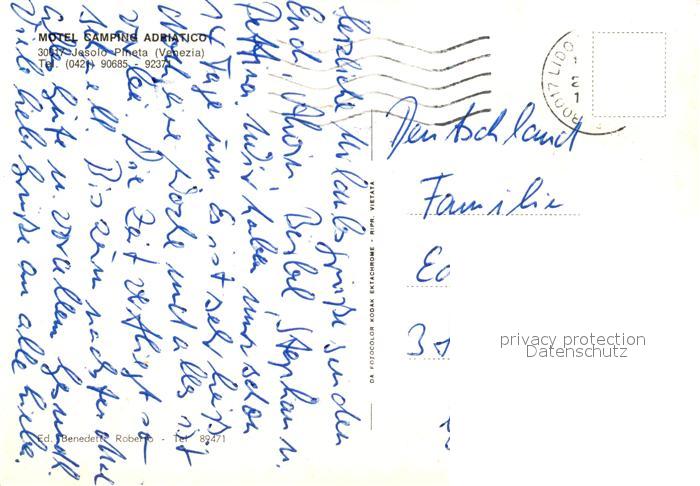 MOTEL CAMPING ADRIATICO
30017 Jesolo Pineta (Venezia)
Tel. (0421) 90685 - 92371
Herzliche Urlaubsgrüße senden
Euch Bärbel Stephan u.
Bettina. Wir haben nur schon
14 Tage um Es ist sehr heiß
Woche und alles ist
Die Zeit verfliegt so
schnell Bis zum nächsten Mal
alles Gute u. vor allem Gesundh.
Viele liebe Grüße an alle
Ed. Benedetti Roberto - Tel. 89471
DA FOTOCOLOR KODAK EKTACHROME - RIPR. VIETATA
30017 LIDO
Deutschland
Familie
privacy protection
Datenschutz